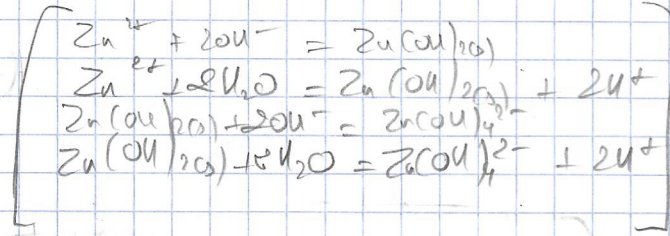 Zn²⁺ + 2OH⁻ = Zn(OH)₂(s)
Zn²⁺ + 2H₂O = Zn(OH)₂(s) + 2H⁺
Zn(OH)₂(s) + 2OH⁻ = Zn(OH)₄²⁻
Zn(OH)₂(s) + 2H₂O = Zn(OH)₄²⁻ + 2H⁺